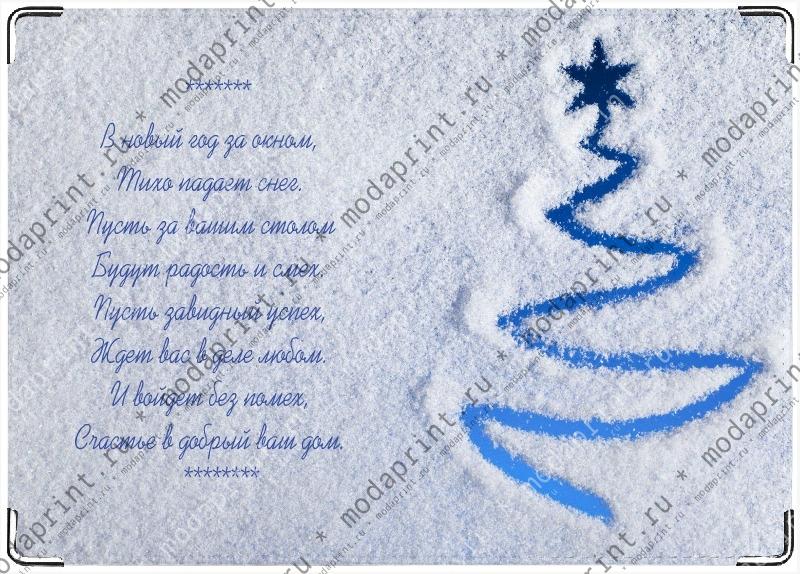 *******
В новый год за окном,
Тихо падает снег.
Пусть за вашим столом
Будут радость и смех.
Пусть завидный успех,
Ждет вас в деле любом.
И войдет без помех,
Счастье в добрый ваш дом.
********
modaprint.ru * modaprint.ru * modaprint.ru